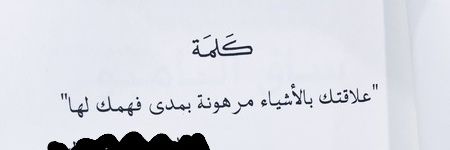 كَلمَة
"علاقتك بالأشياء مرهونة بمدى فهمك لها"